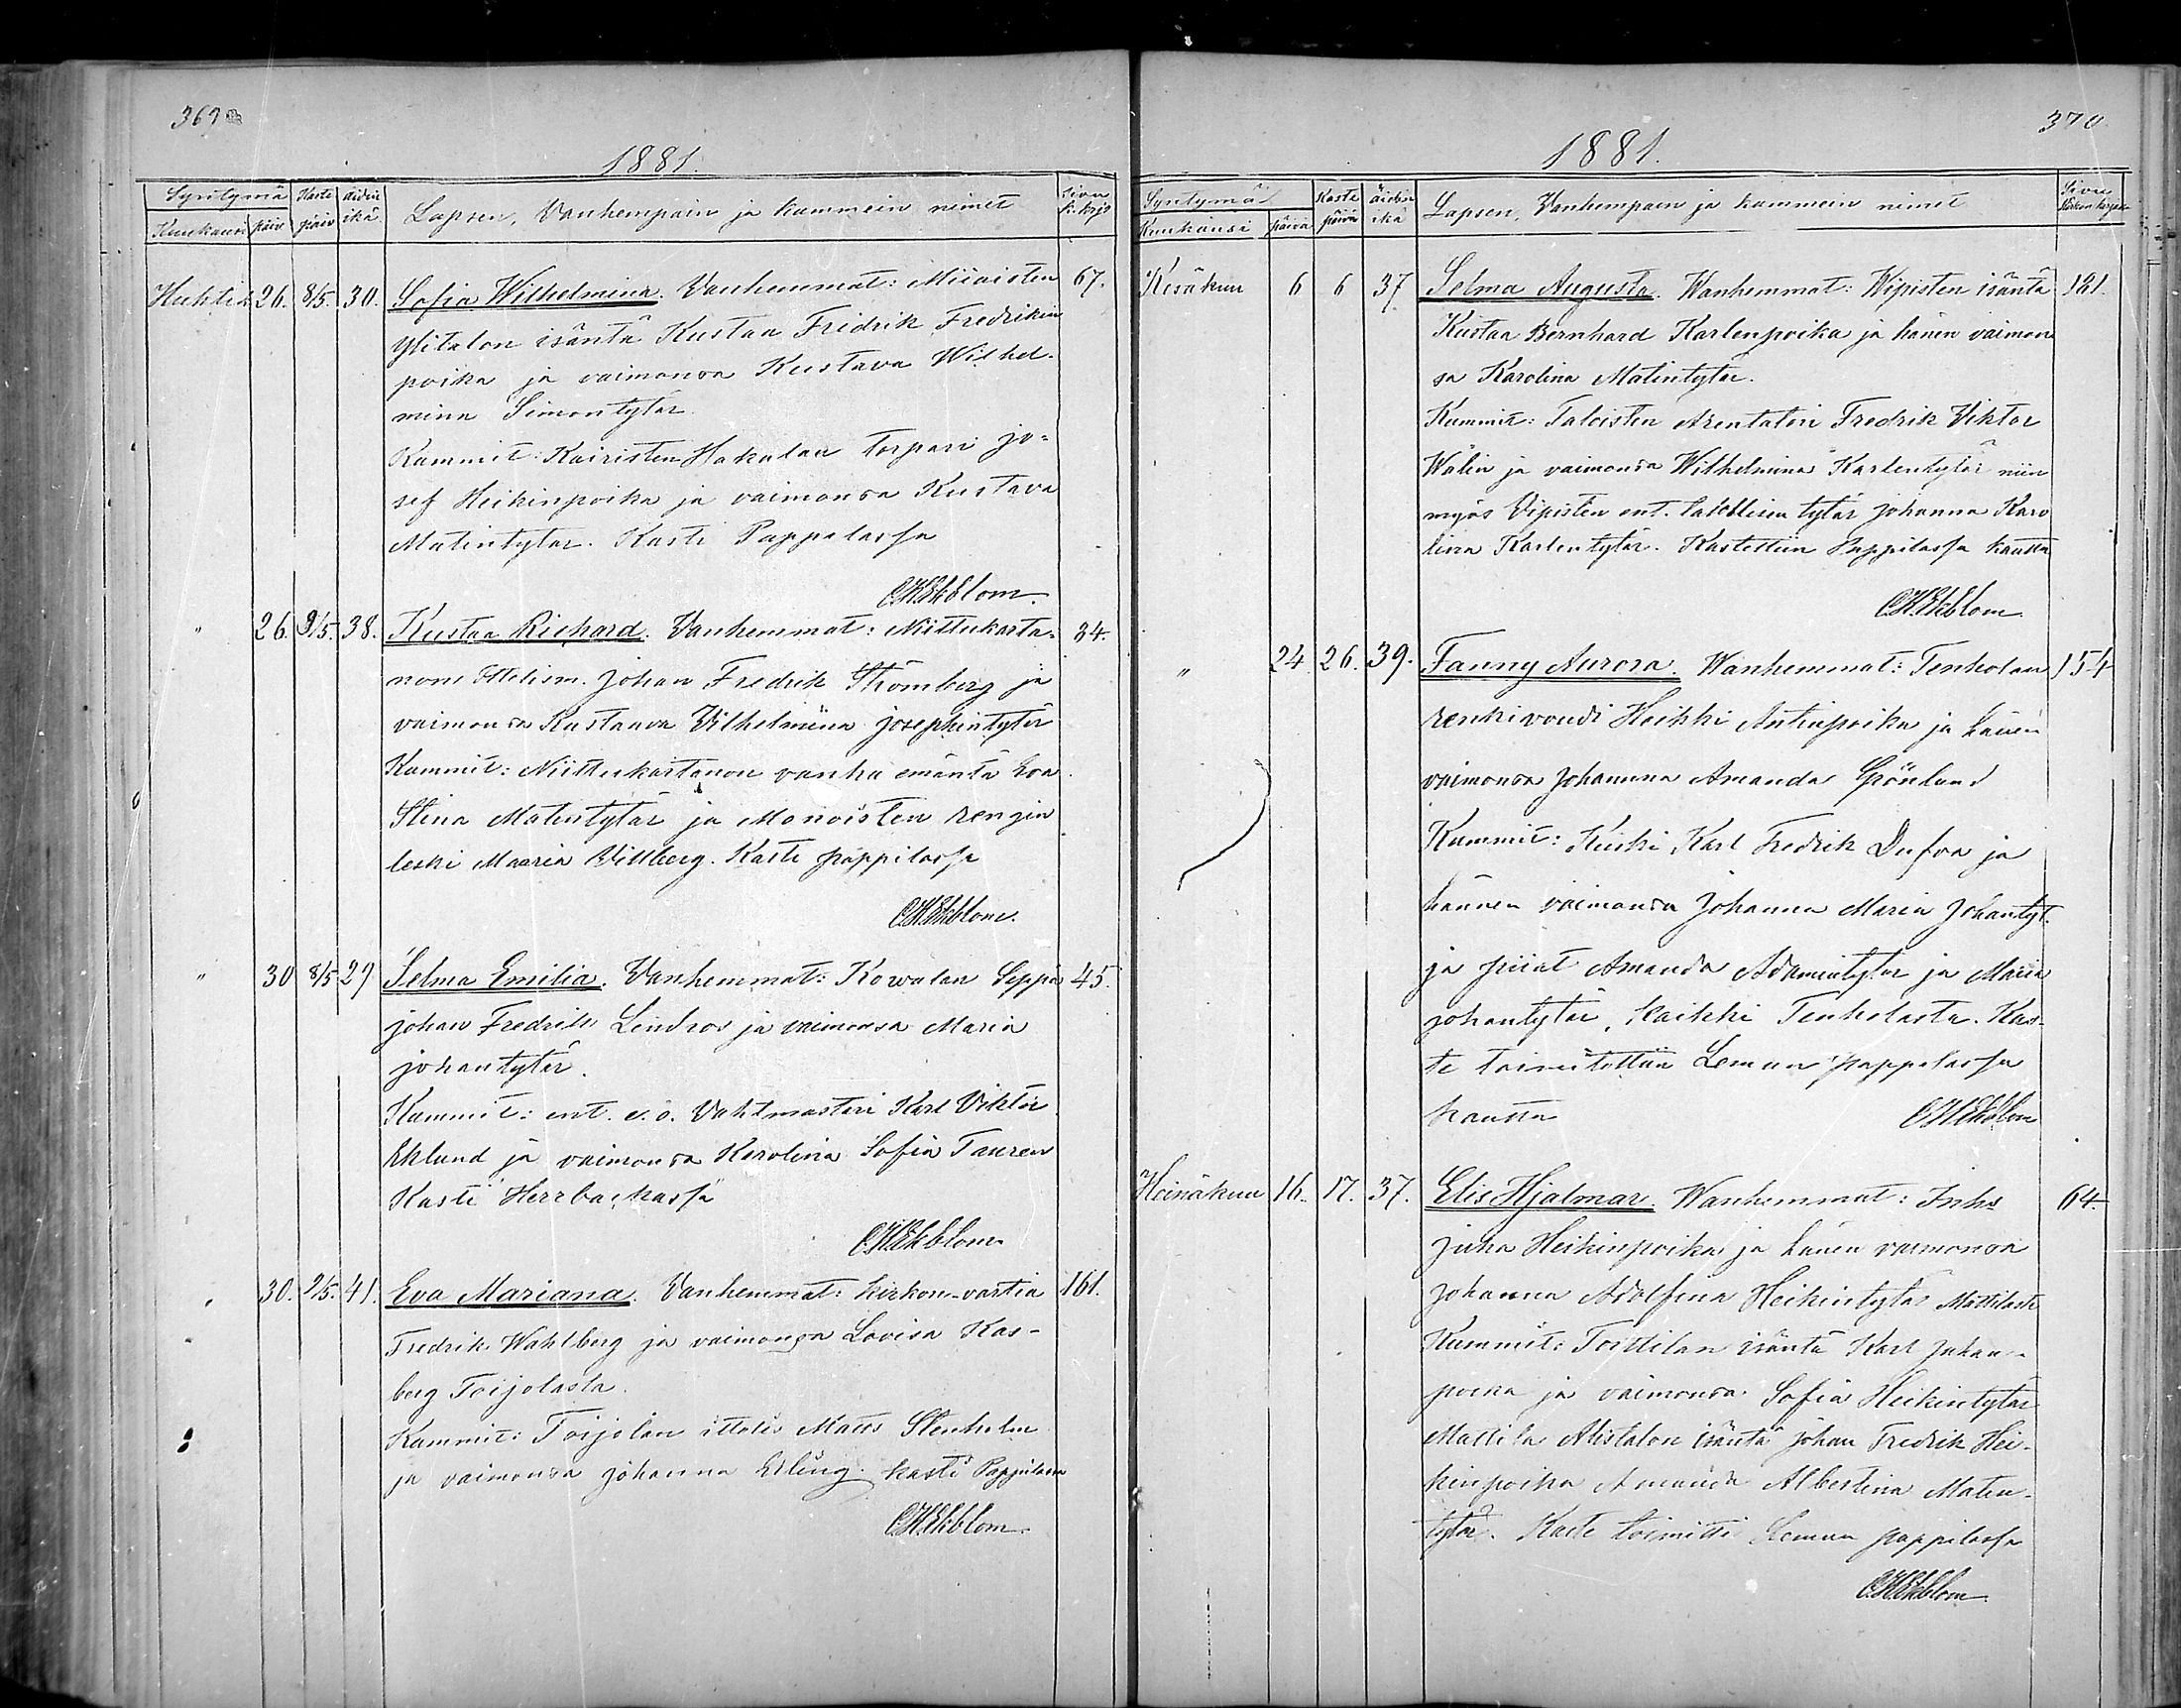 369
1881.
Syntymä Kaste äidin Lapsen, Vanhempain ja kummein nimet sivu
Kuukausi päiv päiv ikä k. kirjs
Huhtik 26. 8/5. 30. Sofia Wilhelmina. Vanhemmat: Miiaisten 67.
Ylitalon isäntä Kustaa Fridrik Fredrikin
poika ja vaimonsa Kustava Wilhel-
mina Simontytär
Kummit: Kairisten Hakalan torpari jo=
sef Heikinpoika ja vaimonsa Kustava
Matintytär. Kasti Pappilassa
C.H.Ekblom.
" 26. 9/5. 38. Kustaa Richard. Vanhemmat: Niittukarta= 34.
noni Johan Fredrik Strömberg ja
vaimonsa Kustaava Vilhelmiina josephintytär
Kummit: Niittukartanon vanha emäntä Eva
Stina Matintytär ja Monoisten rengin
leski Maaria Villberg. Kaste pappilassa
C.H.Ekblom.
" 30 8/5 29 Selma Emilia. Vanhemmat: Kowalan Seppä 45.
johan Fredrik Lindros ja vaimonsa Maria
johantytär.
Kummit: ent. e.o. Vahtmasteri Karl Viktor
Eklund ja vaimonsa Karolina Sofia Tauren
Kasti Herrbackassa
C.H.Ekblom
" 30. 9/5. 41. Eva Mariana. Vanhemmat: kirkon-vartia 161.
Fredrik Wahlberg ja vaimonsa Lovisa Kas-
berg Toijolasta.
Kummit: Toijolan ittellis Matts Stenholm
ja vaimonsa johanna Erling. kasti Pappilassa
C.H.Ekblom.
370
1881.
Syntymä Kaste äidin Lapsen, Vanhempain ja kummein nimet Sivu
Kuukausi päivä päivä ikä Kirkon kirjas
Kesäkuu 6 6 37 Selma Augusta. Wanhemmat: Wipisten isäntä 121.
Kustaa Bernhard Karlenpoika ja hänen vaimon
sa Karolina Matintytär.
Kummit: Taloisten Arentatori Fredrik Viktor
Wälin ja vaimonsa Wilhelmina Karlentytär niin
myös Vipisten ent. talollisen tytär johanna Karo
lina Karlentytär. Kastettiin Pappilassa kautta
C.H.Ekblom.
" 24 26. 39. Fanny Aurora. Wanhemmat: Tenholan 154
renkivouti Heikki Antinpoika ja hänen
vaimonsa Johanna Amanda Grönlund
Kummit: Karl Fredrik Dufva ja
hännen vaimonsa Johanna Maria Johantyt.
ja piiat Amanda Adamintytär ja Maria
johantytär, Kaikki Tenholasta. Kas-
te toimitettiin Lemun pappilassa
kautta C.H.Ekblom
Heinäkuu 16. 17. 37. Elis Hjalmar. Wanhemmat: Inhs 64.
Juha Heikinpoika ja hänen vaimonsa
Johanna Adolfina Heikintytär Mattilasta
Kummit: Toittilan isäntä Karl Juhan-
poika ja vaimonsa Sofia Heikintytär
Mattila Alistalon isäntä johan Fredrik Hei-
kinpoika Amanda Albertina Matin-
tytär. Kaste toimitti Lemun pappilassa
C.H.Ekblom.